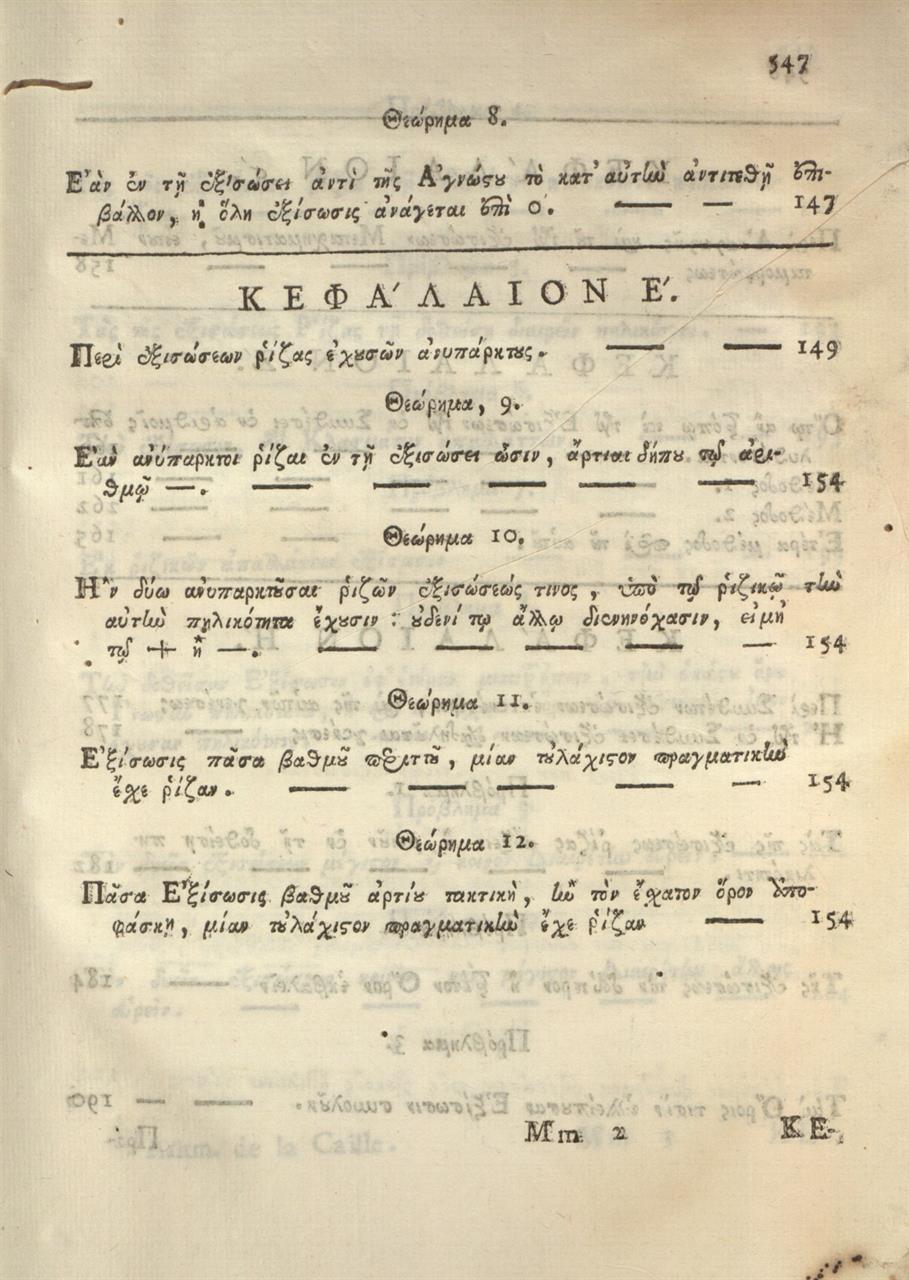 547
Θεώρημα 8.
Εἀν ἐν τῇ ἐξισώσει ἀντὶ τῆς Ἀγνώςου τὸ κατ' αὐτὴν ἀντιτεθῇ ἐπι-
βάλλον, ἡ ὅλη ἐξίσωσις ἀνάγεται ἐπὶ 0. — — 147
ΚΕΦΑ'ΛΑΙΟΝ Ε'.
Περὶ ἐξισώσεων ῥίζας ἐχουσῶν ἀνυπάρκτους. — — 149
Θεώρημα, 9.
Εἀν ἀνύπαρκτοι ῥίζαι ἐν τῇ ἐξισώσει ὦσιν, ἄρτιαι δήπου τῷ ἀρι-
θμῷ —. — — — — — 154
Θεώρημα 10.
Ἢν δύω ἀνυπαρκτοῦσαι ῥιζῶν ἐξισώσεώς τινος, ὑπὸ τῷ ῥιζικῷ τὴν
αὐτὴν πηλικότητα ἔχουσιν : οὐδενί τῳ ἄλλῳ διενηνόχασιν, εἰμὴ
τῷ + ἢ —. — — — — — 154
Θεώρημα 11.
Ἐξίσωσις πᾶσα βαθμοῦ περιττοῦ, μίαν τοὐλάχιςον πραγματικὴν
ἔχε ῥίζαν. — — — — — 154
Θεώρημα 12.
Πᾶσα Ἐξίσωσις βαθμοῦ ἀρτίου τακτικὴ, ἢν τὸν ἔσχατον ὅρον ὑπο-
φάσκῃ, μίαν τοὐλάχιςον πραγματικὴν ἔχε ῥίζαν — 154
Mm 2
ΚΕ-